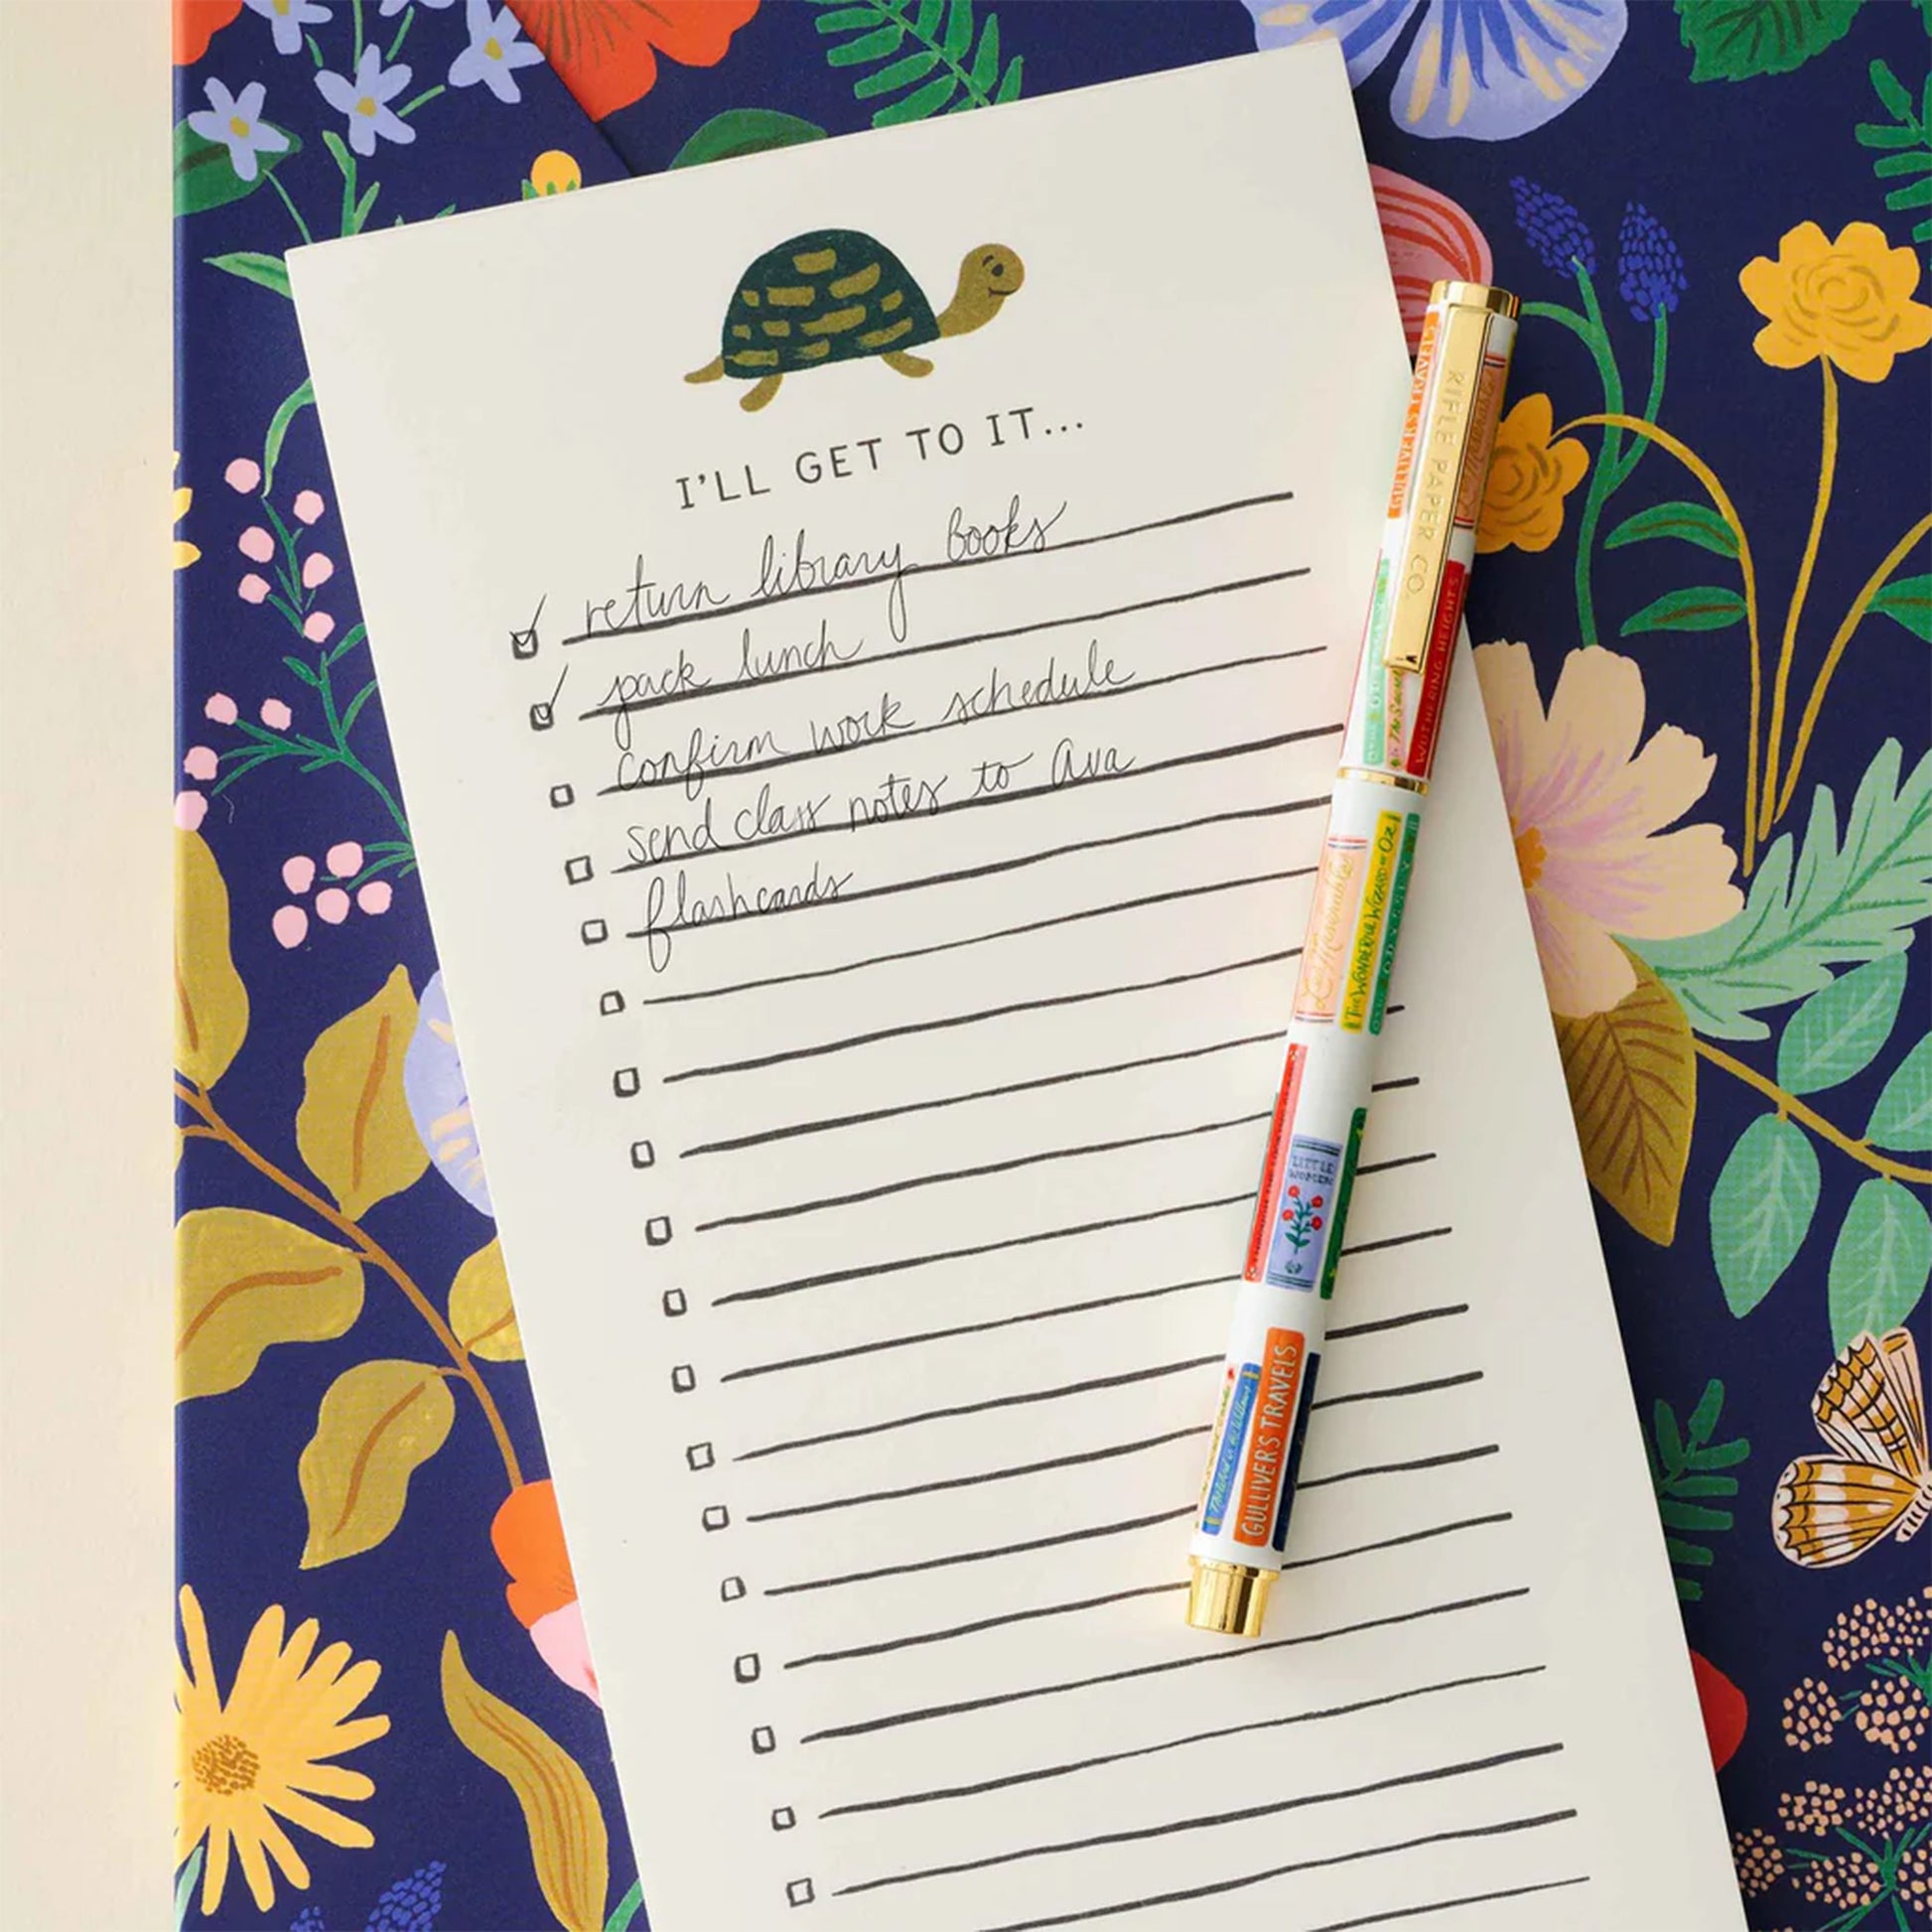 I'LL GET TO IT...
return library books
pack lunch
confirm work schedule
send class notes to Ava
flashcards
RIFLE PAPER CO.
GULLIVER'S TRAVELS
WUTHERING HEIGHTS
Les Misérables
The WONDERFUL WIZARD OF OZ
LITTLE
WOMEN
GULLIVER'S TRAVELS